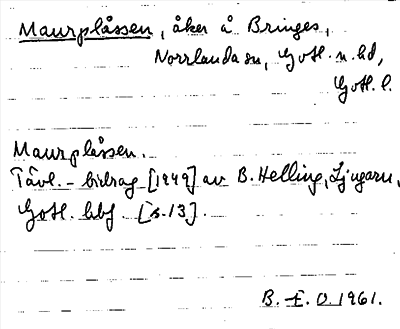 Maurplåssen, åker å Bringes,
Norrlanda sn, Gotl. n. hd,
Gotl. l.
Maurplåssen.
Tävl.-bidrag [1949] av B. Helling, Ljugarn,
Gotl. hbf. [s. 13].
B. E. O. 1961.